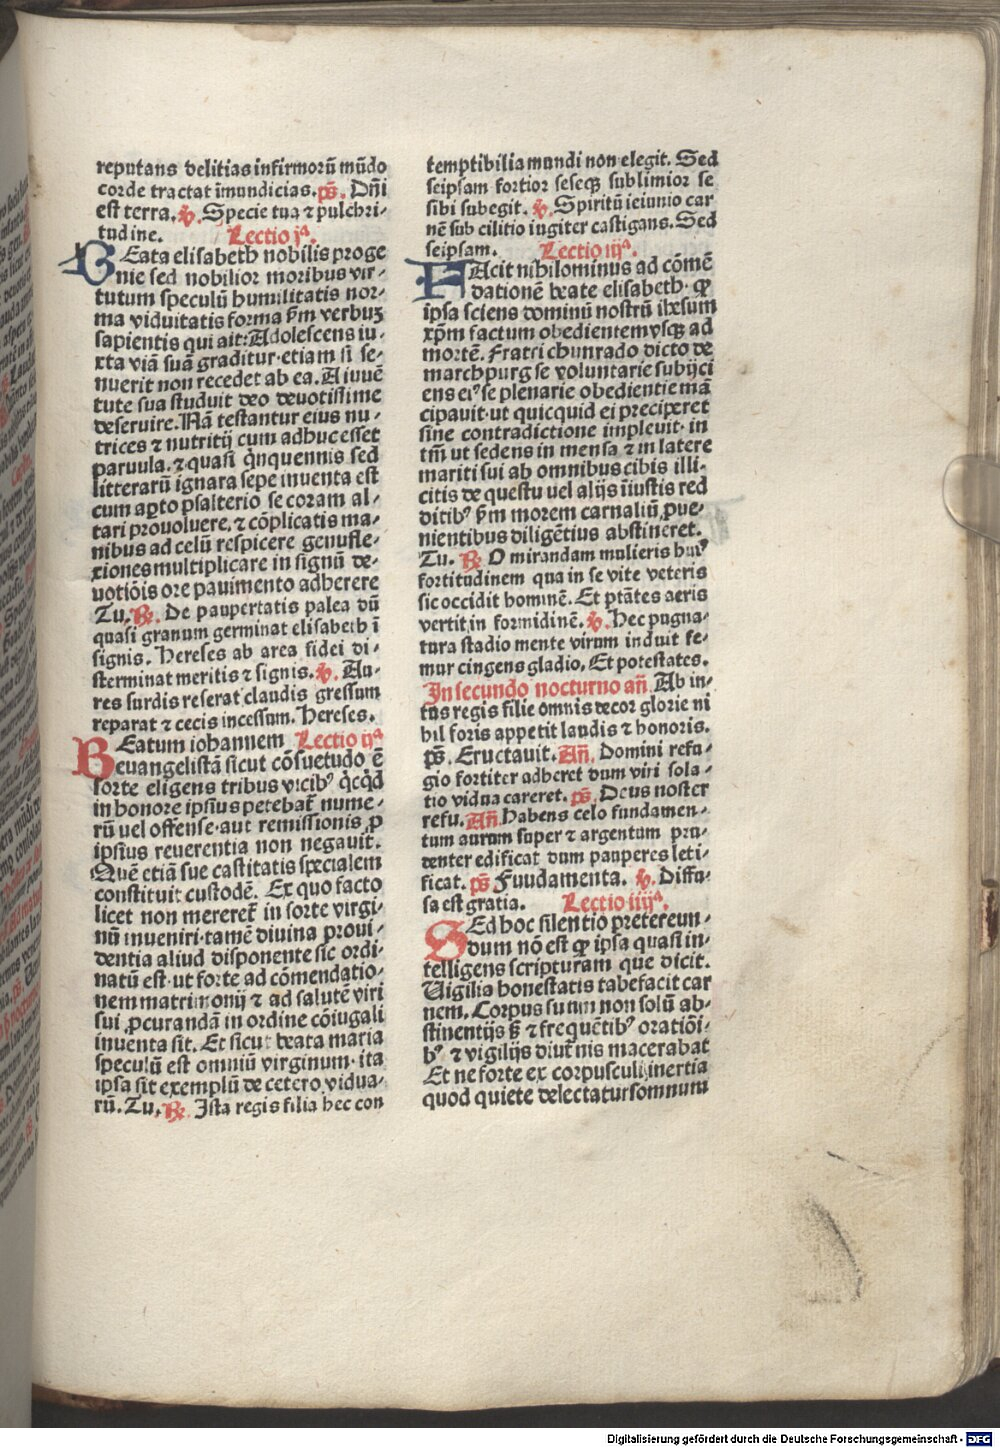 reputans delitias infirmorū mūdo
corde tractat īmundicias. p̄s. Dn̄i
est terra. ℣. Specie tua ⁊ pulchri⸗
tudine. Lectio jª.
BEata elisabeth nobilis proge
nie sed nobilior moribus vir⸗
tutum speculū humilitatis nor⸗
ma viduitatis forma ẜm verbuʒ
sapientis qui ait: Adolescens iu⸗
xta viā suā graditur·etiam si se⸗
nuerit non recedet ab ea. A iuuē
tute sua studuit deo deuotissime
deseruire. Nā testantur eius nu⸗
trices ⁊ nutritij cum adhuc esset
paruula. ⁊ quasi q̇nquennis sed
litterarū ignara sepe inuenta est
cum aꝑto psalterio se coram al⸗
tari prouoluere. ⁊ cōplicatis ma⸗
nibus ad celū respicere genufle⸗
xiones multiplicare in signū de⸗
uotiōis ore pauimento adherere
Tu. ℟. De paupertatis palea dū
quasi granum germinat elisabeth ī
signis. Hereses ab area fidei di⸗
sterminat meritis ⁊ signis. ℣. Au⸗
res surdis reserat claudis gressum
reparat ⁊ cecis incessum. Hereses.
BEatum iohannem Lectio ijª
euangelistā sicut cōsuetudo ē
sorte eligens tribus vicibꝰ q̇cq̇d
in honore ipsius petebat̄ nume⸗
rū uel offense·aut remissionis ꝓ
ipsius reuerentia non negauit.
Quē etiā sue castitatis specialem
constituit custodē. Ex quo facto
licet non mereret̄ in sorte virgi⸗
nū inueniri·tamē diuina proui⸗
dentia aliud disponente sic ordi⸗
natū est·ut forte ad cōmendatio⸗
nem matrimonij ⁊ ad salutē viri
sui ꝓcurandā in ordine cōiugali
inuenta sit. Et sicut beata maria
speculū est omniū virginum·ita
ipsa sit exemplū de cetero vidua⸗
rū. Tu. ℟. Ista regis filia hec con
temptibilia mundi non elegit. Sed
seipsam fortior seseqꝫ sublimior se
sibi subegit. ℣. Spiritū ieiunio car
nē sub cilitio iugiter castigans. Sed
seipsam. Lectio iijª.
FAcit nihilominus ad cōmē
dationē beate elisabeth·ꝙ
ipsa sciens dominū nostrū ihesum
xp̄m factum obedientem vsqꝫ ad
mortē. Fratri chunrado dicto de
marchpurg se voluntarie subijci
ens eiꝰ se plenarie obedientie mā
cipauit·ut quicquid ei preciperet
sine contradictione impleuit·in
tm̄ ut sedens in mensa ⁊ in latere
mariti sui ab omnibus cibis illi⸗
citis de questu uel alijs īiustis red
ditibꝰ ẜm morem carnaliū ꝓue⸗
nientibus diligētius abstineret.
Tu. ℟. O mirandam mulieris huiꝰ
fortitudinem qua in se vite veteris
sic occidit hominē. Et ptātes aeris
vertit in formidinē. ℣. Hec pugna⸗
tura stadio mente virum induit fe⸗
mur cingens gladio. Et potestates.
In secundo nocturno an̄ Ab in⸗
tus regis filie omnis decor glorie ni
hil foris appetit laudis ⁊ honoris.
p̄s. Eructauit. An̄. Domini refu⸗
gio fortiter adheret dum viri sola⸗
tio vidua careret. p̄s. Deus noster
refu. An̄ Habens celo fundamen⸗
tum aurum super ⁊ argentum pru⸗
denter edificat dum pauperes leti⸗
ficat. p̄s Fuudamenta. ℣. Diffu⸗
sa est gratia. Lectio iiijª.
SEd hoc silentio pretereun⸗
dum nō est ꝙ ipsa quasi in⸗
telligens scripturam que dicit.
Uigilia honestatis tabefacit car
nem. Corpus suum non solū ab⸗
stinentijs ꝫ ⁊ frequētibꝰ oratiōi⸗
bꝰ ⁊ vigilijs diut̄nis macerabat
Et ne forte ex corpusculi inertia
quod quiete delectatur somnum
Digitalisierung gefördert durch die Deutsche Forschungsgemeinschaft - DFG